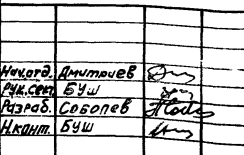 Нач.отд. Дмитриев
Рук.сект БУШ
Разраб. Соболев
Н.конт. БУШ